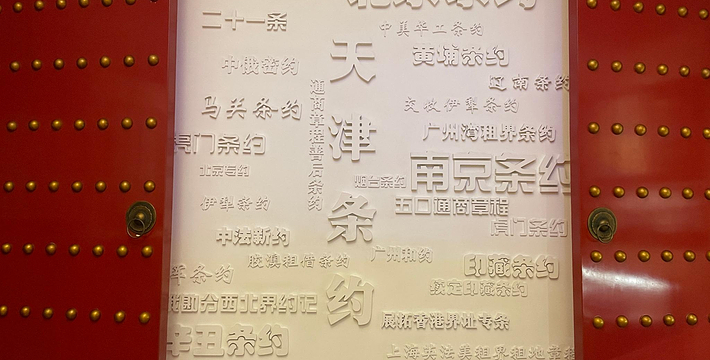 北京条约
二十一条
中美华工条约
天津条约
黄埔条约
中俄密约
辽南条约
通商章程善后条约
马关条约
交收伊犁条约
广州湾租界条约
虎门条约
北京专约
南京条约
烟台条约
伊犁条约
五口通商章程
虎门条约
中法新约
广州和约
胶澳租借条约
印藏条约
续定印藏条约
勘分西北界约记
展拓香港界址专条
辛丑条约